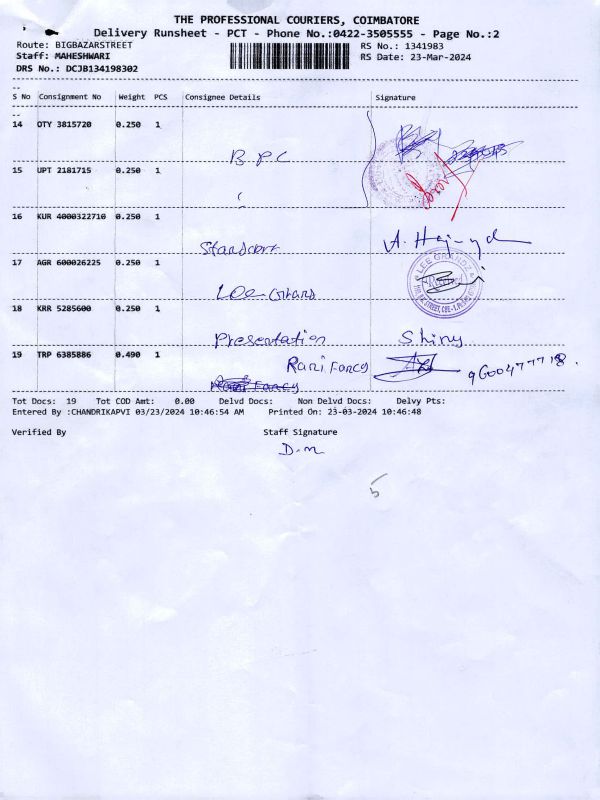 THE PROFESSIONAL COURIERS, COIMBATORE
Delivery Runsheet - PCT - Phone No.:0422-3505555 - Page No.:2
Route: BIGBAZARSTREET RS No.: 1341983
Staff: MAHESHWARI RS Date: 23-Mar-2024
DRS No.: DCJB134198302
S No Consignment No Weight PCS Consignee Details Signature
14 OTY 3815720 0.250 1
B P C
15 UPT 2181715 0.250 1
16 KUR 4000322710 0.250 1
17 AGR 600026225 0.250 1
LEE GRANDZ
18 KRR 5285600 0.250 1
Presentation Shiny
19 TRP 6385886 0.490 1
Rani Fancy
Rani Fancy
Tot Docs: 19 Tot COD Amt: 0.00 Delvd Docs: Non Delvd Docs: Delvy Pts:
Entered By :CHANDRIKAPVI 03/23/2024 10:46:54 AM Printed On: 23-03-2024 10:46:48
Verified By Staff Signature
D.M
5